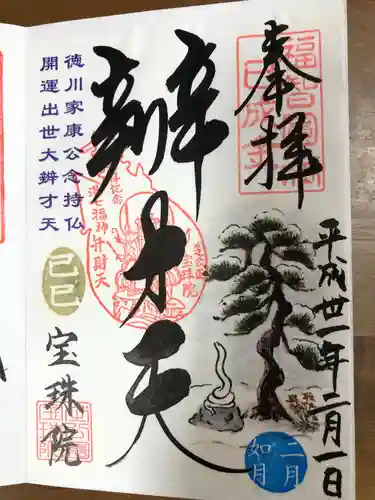 奉拝
平成卅一年二月一日
辨才天
徳川家康公念持仏
開運出世大辨才天
己巳
宝珠院
二月
如月